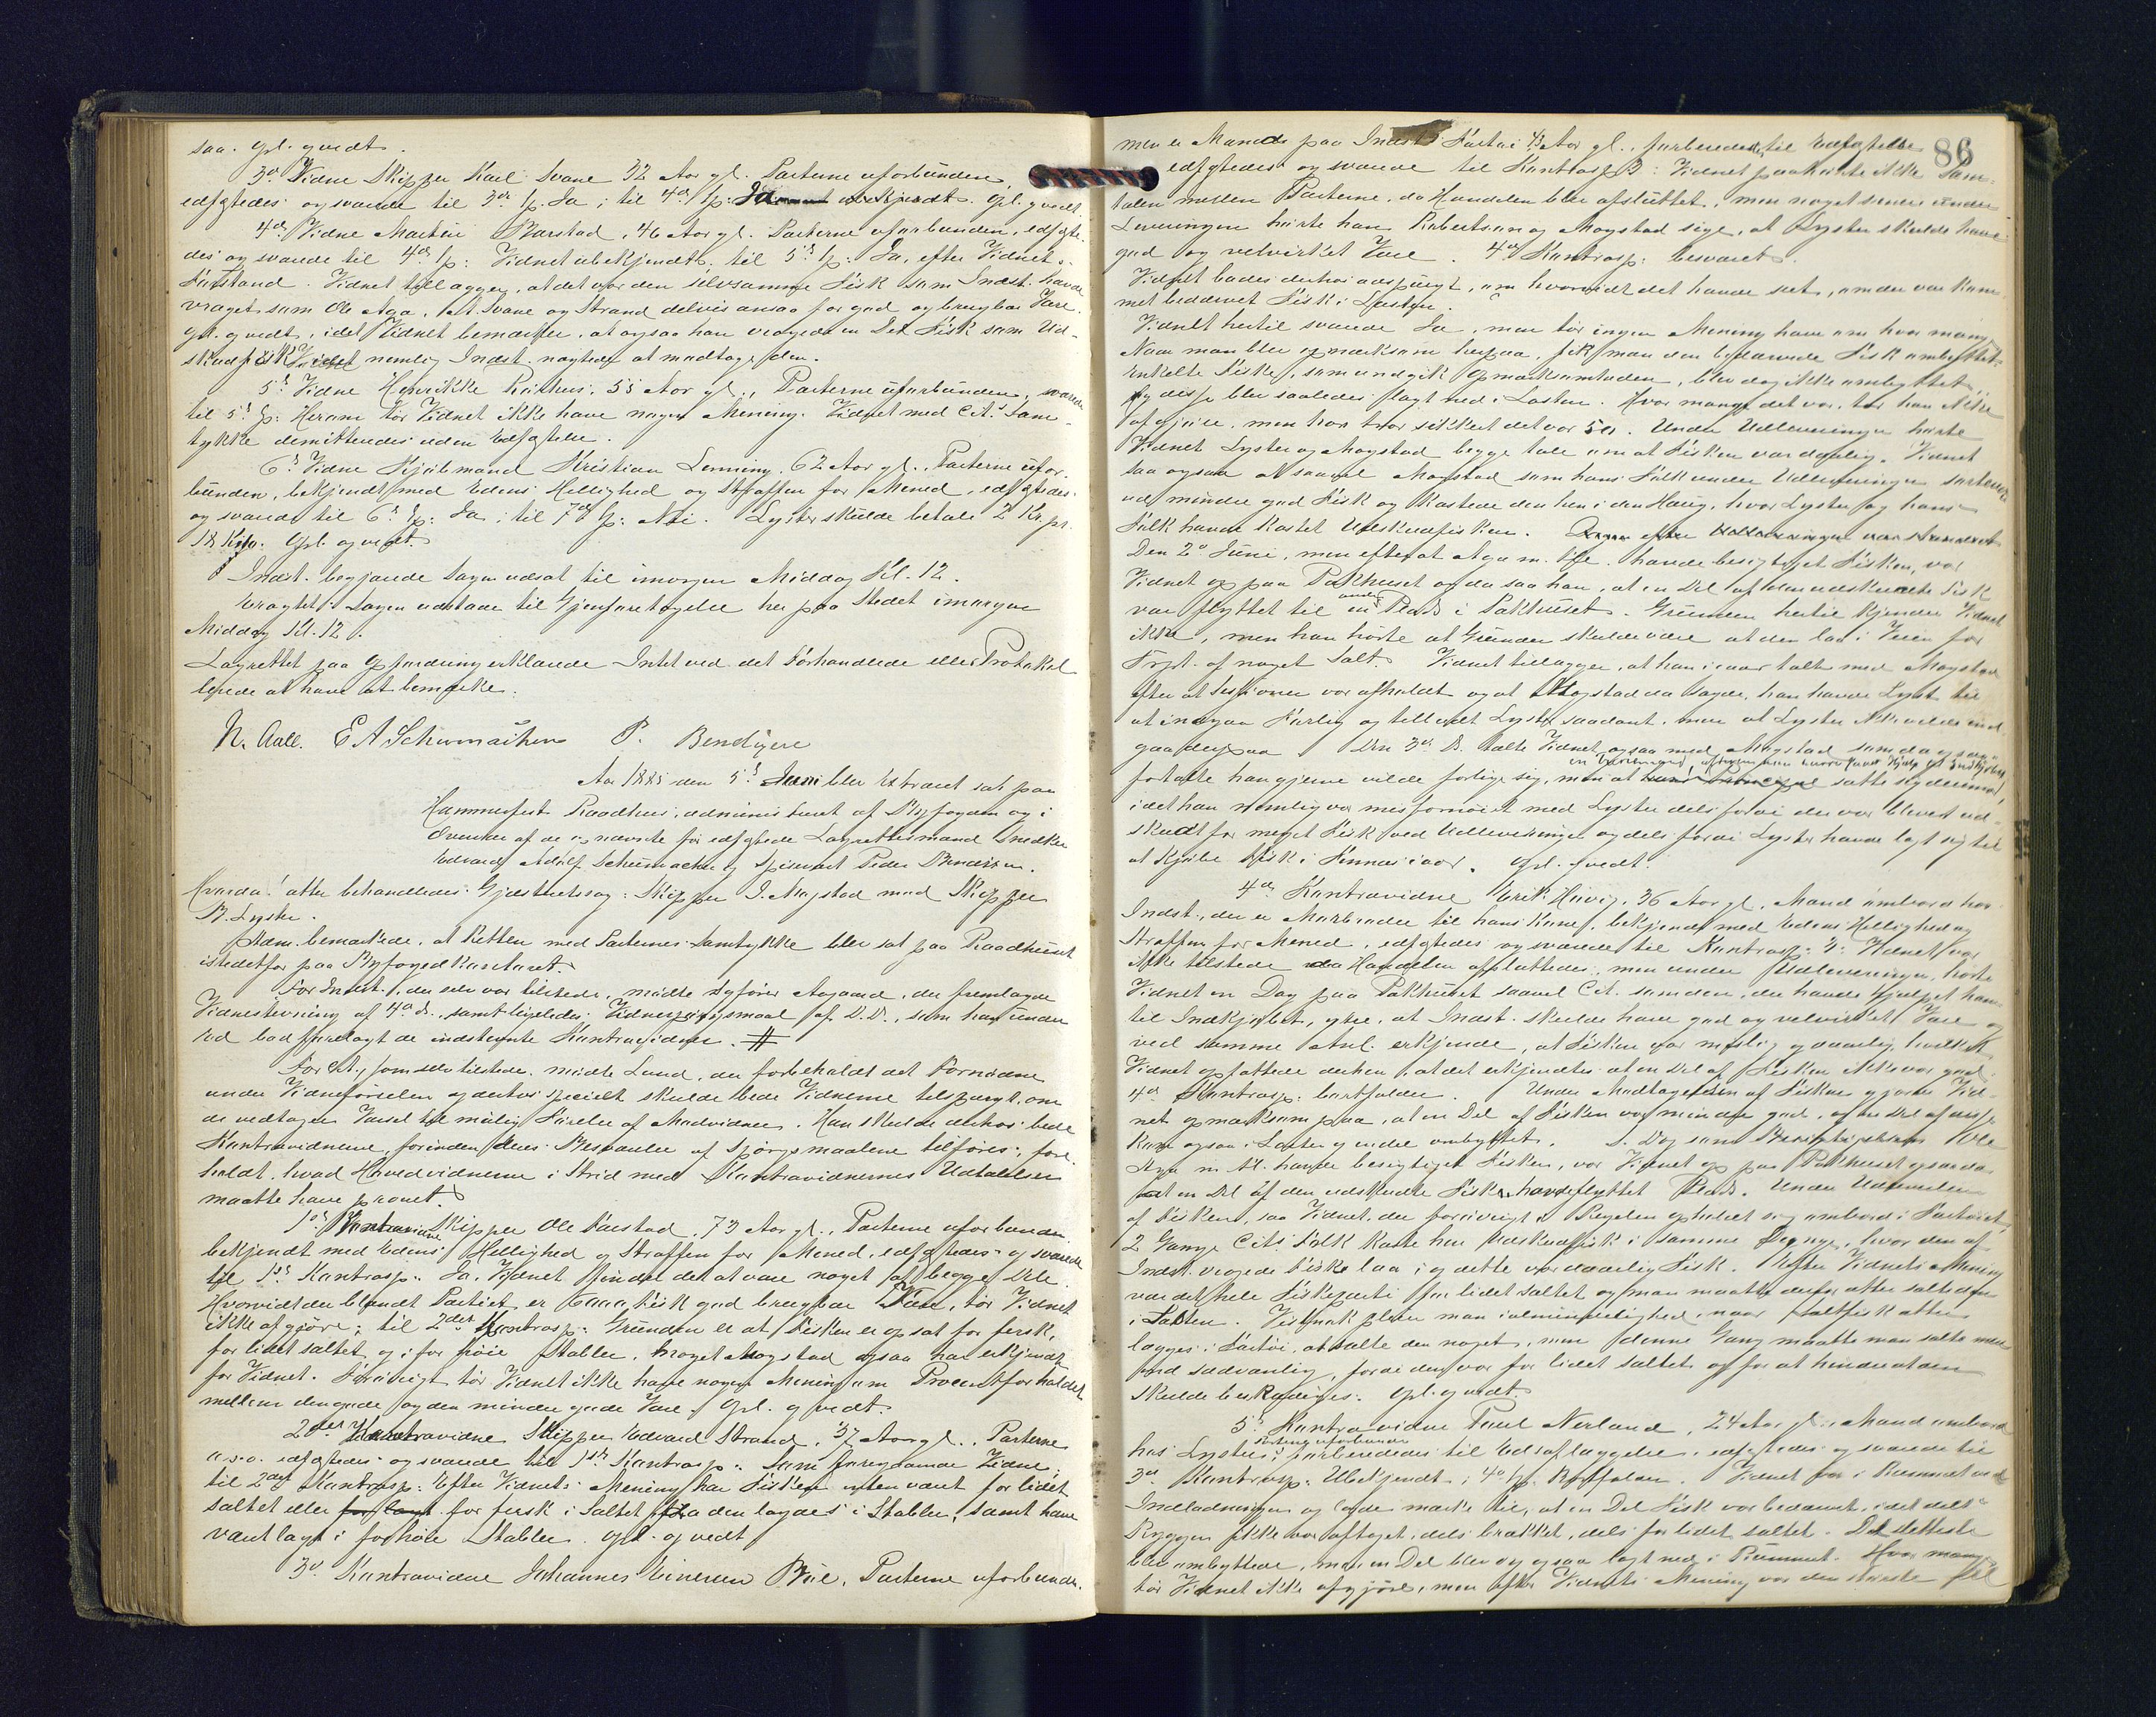 saa. Opl. gvedt.
3die Vidne Skipper Karl Svane 32 Aar gl. Parterne uforbunden,
edfæstedes og svarede til 3die Sp. Ja; til 4de Sp. Ja ubekjendt. Opl. gvedt.
4de Vidne Martin Barstad, 46 Aar gl. Parterne uforbunden, edfæste-
des og svarede til 4de Sp: Vidnet ubekjendt. til 5te Sp: Ja, efter Vidnets
Forstand. Vidnet tillægger, at det var den selvsamme Fisk som Indst. havde
vraget som Ole Aga, At. Svane og Strand delvis ansaa for god og brugbar Vare.
Opl. gvedt, idet Vidnet bemærker, at ogsaa han vragede en Del Fisk som Ud-
skudfisk nemlig Indst. nægtede at modtage den.
5te Vidne Henrikke 55 Aar gl., Parterne uforbunden, svarede
til 5te Sp: Herom tør Vidnet ikke have nogen Mening. Vidnet med Cit.s Sam-
tykke demitteredes uden Edfæstelse.
6te Vidne Kjøbmand Kristian Lenning, 62 Aar gl., Parterne ufor-
bunden, bekjendt med Edens Hellighed og Straffen for Mened, edfæstedes
og svarede til 6te Sp: Ja; til 7de Sp: Nei. Lyster skulde betale 2 Kr. pr.
18 Kilo. Opl. og vedt.
Indst. begjærede Sagen udsat til imorgen Middag Kl. 12.
Eragtet: Sagen udstaar til Gjenforetagelse her paa Stedet imorgen
Middag Kl. 12.
Lagrettet paa Opfordring erklærede Intet ved det Forhandlede eller Protokol-
lerede at have at bemærke.
N. Aall. E A Schumacher P. Bendixen
Aar 1885 den 5te Juni blev Extraret sat paa
Hammerfest Raadhus, administreret af Byfogden og i
Overvær af de opnævnte før edfæstede Lagrettesmænd Snedker
Edvard Adolf Schumacher og Spisevært Peder Bendixen.
Hvorda! atter behandledes Gjæsteretssag: Skipper J. Magstad mod Skipper
B. Lyster.
Adm. bemærkede, at Retten med Parternes Samtykke blev sat paa Raadhuset
istedetfor paa Byfogedkontoret.
For Indst., der selv var tilstede, mødte Sagfører Aagaard, der fremlagde
Vidnestevning af 4de ds., samt ligeledes Vidnespørgsmaal af D. D., som han under
Ed bad forelagt de indstevnte Kontravidner. #
For Cit., som selv tilstede, mødte Lund, der forbeholdt det Fornødne
under Vidneførselen og derhos specielt skulde bede Vidnerne tilspurgt, om
de vedtager Varsel til mulig Førelse af Modvidner. Han skulde derhos bede
Kontravidnerne, forinden deres Besvarelse af Spørgsmaalene tilføres, fore-
holdt, hvad Hovedvidnerne i Strid med Kontravidnernes Udtalelser
maatte have prøvet.
1ste Skipper Ole Farstad, 73 Aar gl., Parterne uforbunden
bekjendt med Edens Hellighed og Straffen for Mened, edfæstedes og svarede
til 1ste Kontrasp. Ja, Vidnet findet det at være noget af begge Dele.
Hvorvidt der blandt Partiet er Fisk god brugbar Vare, tør Vidnet
ikke afgjøre; til 2det Kontrasp: Grunden er at Fisken er opsat for fersk,
for lidet saltet og i for høie Stabler, hvoget Magstad ogsaa har erkjendt
for Vidnet. Forøvrigt tør Vidnet ikke have nogen Mening om Procentforholdet
mellem den gode og den mindre gode Vare. Opl. gvedt.
2det Kontravidne Skipper Edvard Strand, 37 Aar gl., Parterne
u. s. o. edfæstedes og svarede til 1ste Kontrasp: Som foregaaende Vidne,
til 2det Kontrasp: Efter Vidnets Mening har Fisken enten været for lidet
saltet eller for fersk i Saltet da den lagdes i Stabler, samt have
været lagt i for høie Stabler. Opl. og vedt.
3die Kontravidne Johannes Einersen Bue, Parterne uforbunden.
86
men er Mand paa Indst.s Fartøi 43 Aar gl., forberedes til Edfæstelse
edfæstedes og svarede til Kontrasp 3: Vidnet paahørte ikke Sam-
talen mellem Parterne, da Handelen blev afsluttet, men noget senere under
Leveringen hørte han Robertsen og Magstad sige, at Lyster skulde have
god og velvirket Vare. 4de Kontrasp. besvaret.
Vidnet bades derhos adspurgt, om hvorvidt det havde seet, om der var kom-
met bedærvet Fisk i Lasten.
Vidnet hertil svarede Ja, men tør ingen Mening have om hvor mange
Naar man blev opmærksom herpaa, fik man den bedærvede Fisk ombyttet.
Enkelte Fiske, som undgik Opmærksomheden, blev dog ikke ombyttet,
og disse blev saaledes lagt ned i Lasten. Hvor mange det var, tør han ikke
afgjøre, men han tror sikkert det var 50. Under Udleveringen hørte
Vidnet Lyster og Magstad begge tale om at Fisken var daarlig. Vidnet
saa ogsaa at saavel Magstad som hans Folk under Udleveringen sorterede
ud mindre god Fisk og kastede den hen i den Haug, hvor Lyster og hans
Folk havde kastet Udskudfisken.
Den 2den Juni, men efter at Aga m. fl. havde besigtiget Fisken, var
Vidnet op paa Pakhuset og da saa han, at en Del af den udskudte Fisk
var flyttet til en anden Plads i Pakhuset. Grunden hertil kjender Vidnet
ikke, men han hørte at Grunden skulde være at den laa i Veien for
Trpt. af noget Salt. Vidnet tillægger, at han igaar talte med Magstad
efter at Sessionen var afholdt og at Magstad da sagde, han havde Lyst til
at indgaa Forlig og tillod Lyster saadant, men at Lyster ikke vilde ind-
gaa derpaa. Den 3die ds. talte Vidnet ogsaa med Magstad som da ogsaa
fortalte han gjerne vilde forlige sig, men at satte sig derimod,
idet han nemlig var misfornøiet med Lyster dels fordi der var blevet ud-
skudt for meget Fisk ved Udleveringen og dels fordi Lyster havde lagt sig til
at kjøbe Fisk i Finnæs iaar. Opl. gvedt.
4de Kontravidne Erik Havig, 36 Aar gl., Mand ombord hos
Indst., der er Morbroder til hans Kone, bekjendt med Edens Hellighed og
Straffen for Mened, edfæstedes og svarede til Kontrasp. 3: Vidnet var
ikke tilstede da Handelen afsluttedes, men under Udleveringen, hørte
Vidnet en Dag paa Pakhuset saavel Cit. som den, der havde hjulpet ham
til Indkjøbet, ytre, at Indst. skulde have god og velvirket Vare og
ved samme Anl. erkjende, at Fisken var mislig og daarlig, hvilket
Vidnet opfattede derhen, at det erkjendtes at en Del af Fisken ikke var god.
4de Kontrasp. bortfalder. Under Modtagelsen af Fisken gjorde Vid-
net opmærksom paa, at en Del af Fisken var mindre god, og en Del af disse
kom ogsaa i Lasten og under ombyttet. S. Dag som Besigtigelsen Ole
Aga m. fl. havde besigtiget Fisken, var Vidnet op paa Pakhuset og saa da
at en Del af den udskudte Fisk havde flyttet Plads. Under Udleveringen
af Fisken, saa Vidnet, der forøvrigt i Regelen opholdt sig ombord i Fartøiet,
2 Gange Cits Folk kaste hen Udskudfisk i samme Dynge, hvor den af
Indst. vragede Fisk laa i og dette var daarlig Fisk. Efter Vidnets Mening
var det hele Fiskeparti for lidet saltet og man maatte derfor atter salte den
i Lasten. Vistnok pleier man i almindelighed, naar Saltfisk atter
lægges i Fartøi, at salte den noget, men denne Gang maatte man salte mere
end sædvanlig, fordi den var for lidet saltet og for at hindre at den
skulde beskadiges. Opl. gvedt.
5te Kontravidne Paul Nerland, 24 Aar gl., Mand ombord
hos Lyster, Parterne uforbunden forberedes til Edsaflæggelse, edfæstedes og svarede til
3die Kontrasp. Ubekjendt; 4de Sp. Bortfalder. Vidnet var i Rummet ved
Indladningen og lagde mærke til, at en Del Fisk var bedærvet, idet delt
Ryggen ikke var aftaget, dels brækket, dels for lidet saltet. Det sletteste
blev ombyttede, men en Del blev og ogsaa lagt ned i Rummet. Hvor mange
tør Vidnet ikke afgjøre, men efter Vidnets Mening var den største Del